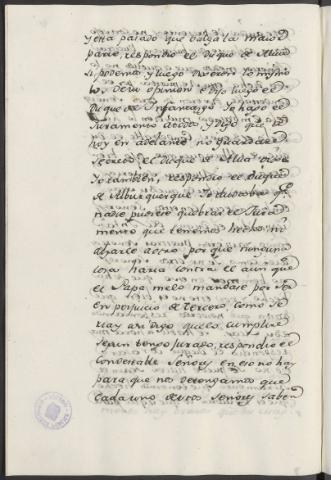 y esta pasado que valga la maior
parte, respondio el Duque de Alva
si podemos, y luego dixeron lo mismo
los de su opinion, e dijo luego el
Duque de Infantazgo Yo hago el
Juramento a todos, y digo que de
hoy en adelante no guardare
secreto, el Duque de Alva dixo
Yo tambien, respondio el Duque
de Alburquerque Yo dudo que
nadie puede quebrar el Jura
mento que tenemos hecho ni
darle a otro por que ninguna
cosa haria contra el aun que
el Papa me lo mandase por ser
en perjuicio de tercero, como le
hay asi digo que lo cumplire
segun tengo jurado, respondio el
Condestable señores en eso no hay
para que nos detengamos que
cada uno de vos señores saben